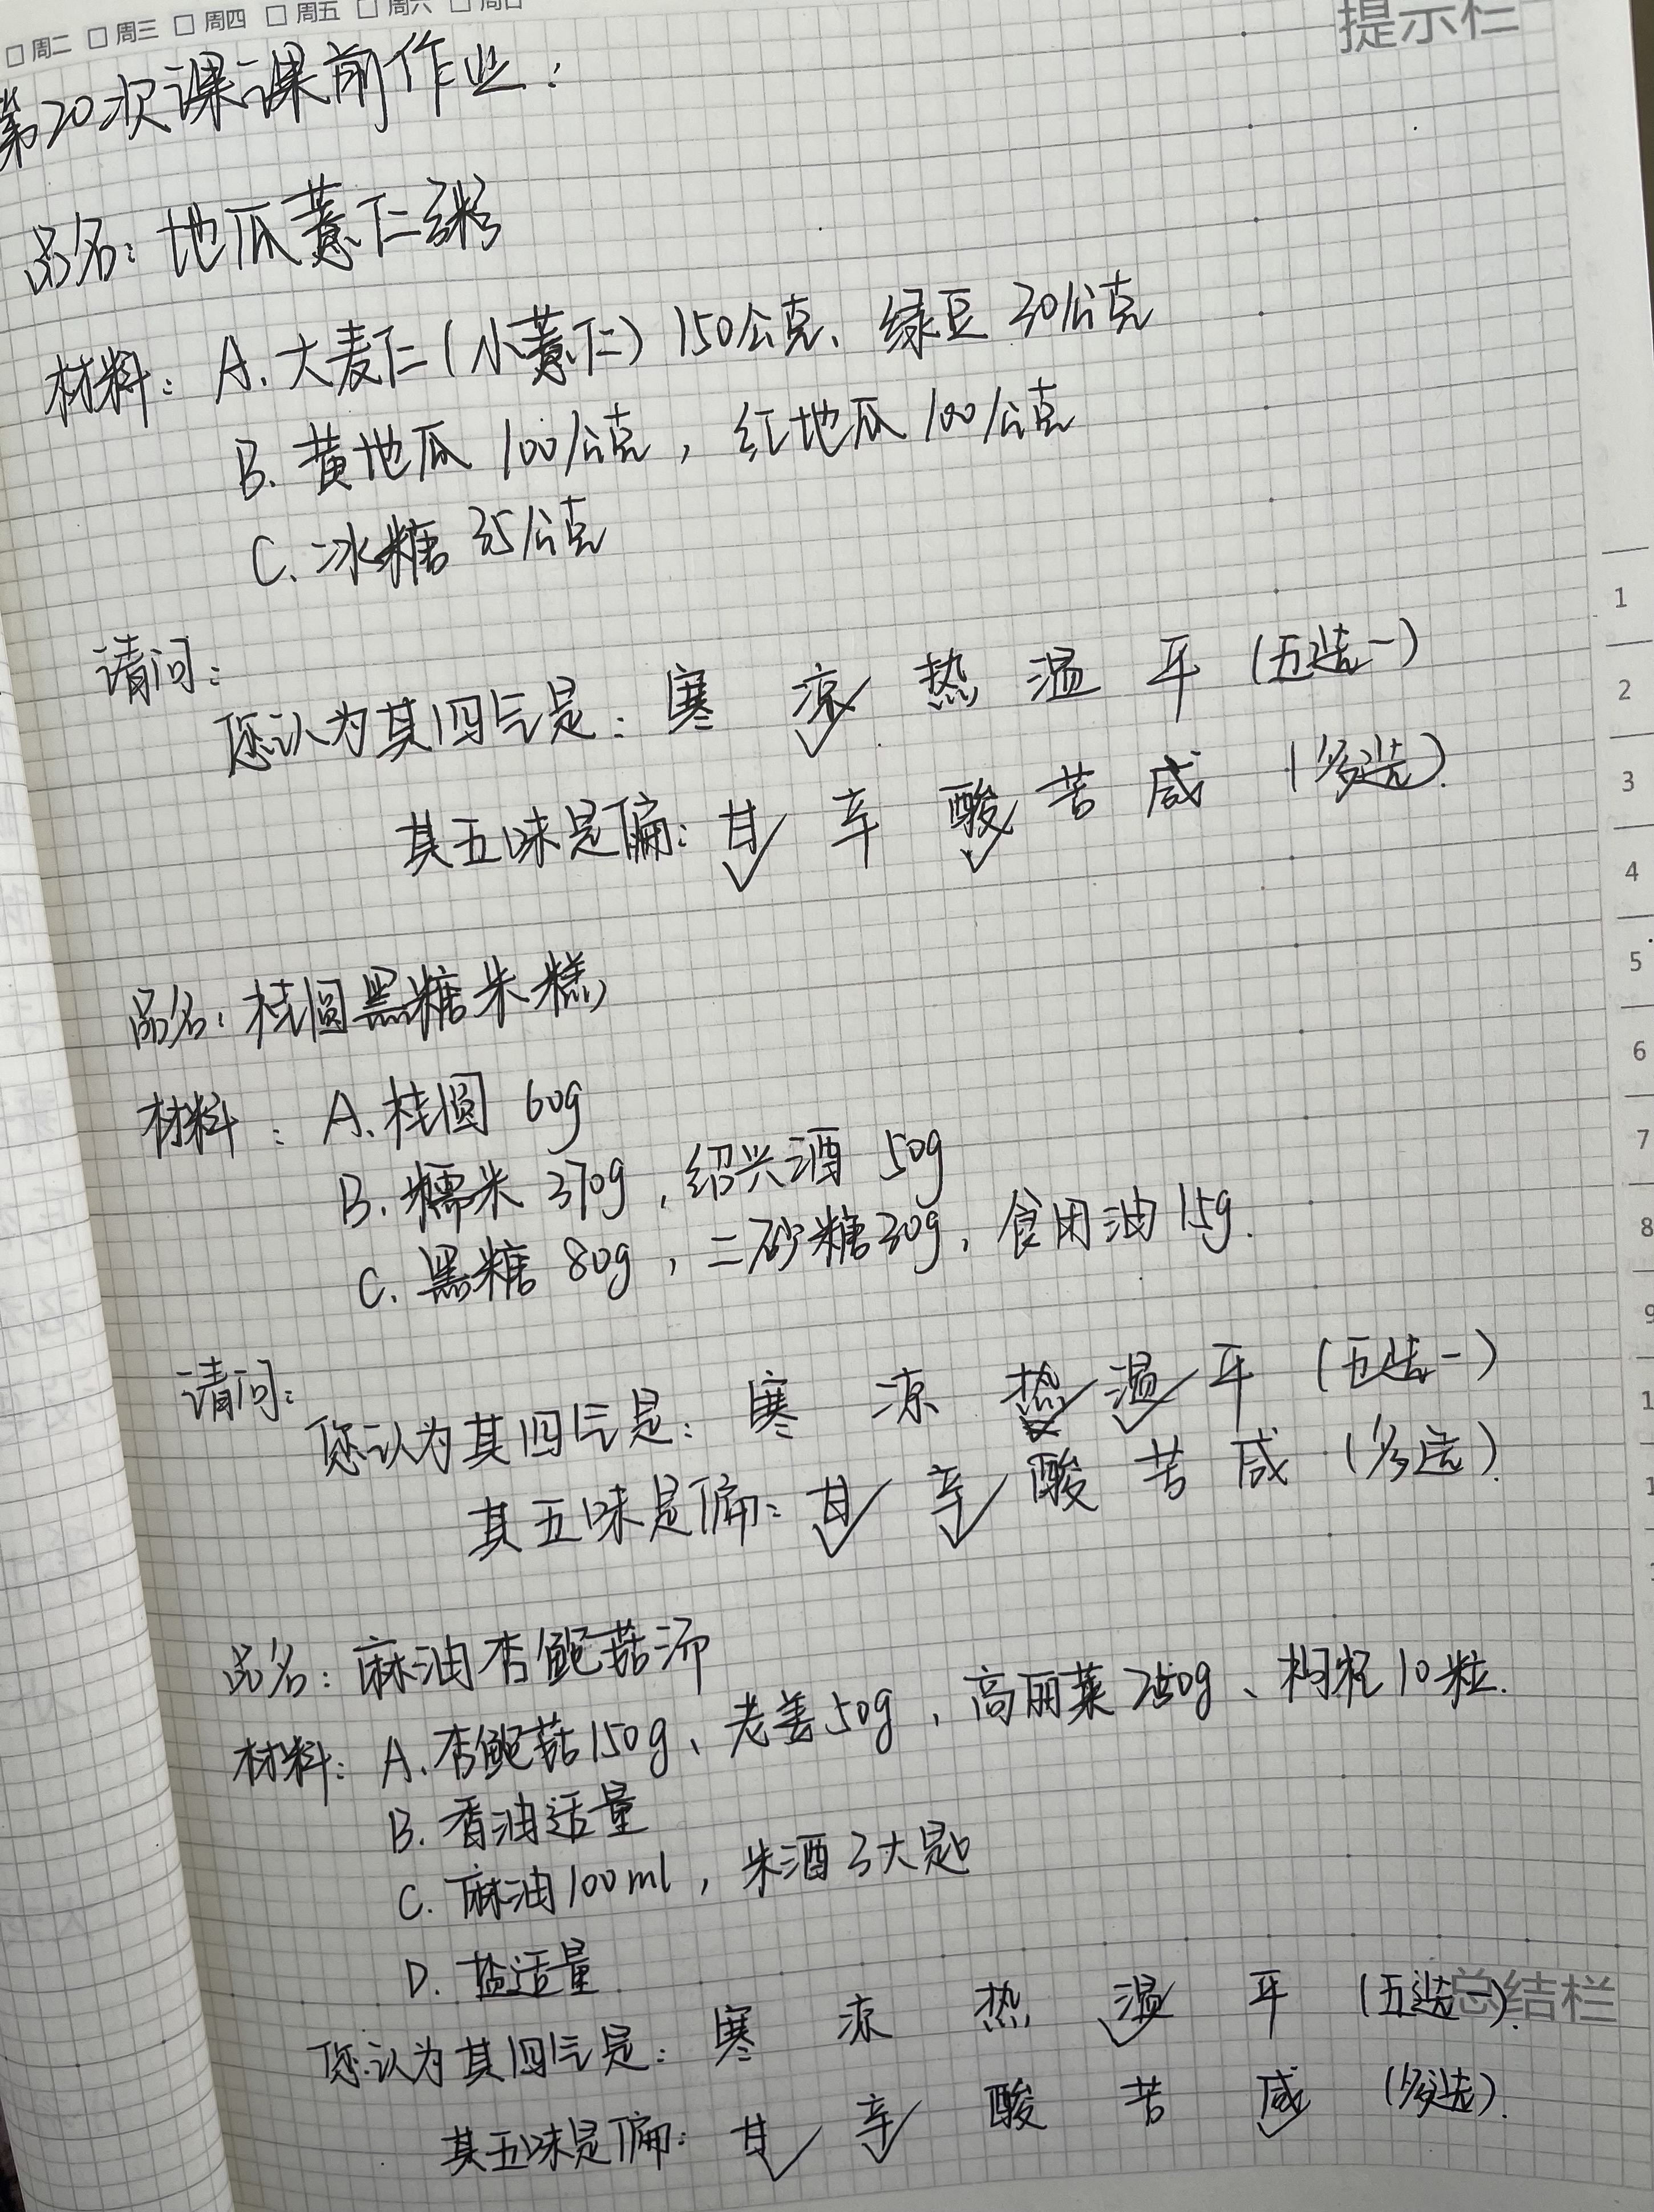 □周二 □周三 □周四 □周五 □周六 □周日
提示栏
第20次课课前作业：
品名：地瓜薏仁粥
材料：A. 大麦仁(小薏仁) 150公克、绿豆 30公克
B. 黄地瓜 100公克，红地瓜 100公克
C. 冰糖 35公克
请问：
您认为其四气是：寒 凉✓ 热 温 平 (五选一)
其五味是偏：甘✓ 辛 酸✓ 苦 咸 (多选).
品名：桂圆黑糖米糕
材料：A. 桂圆 60g
B. 糯米 370g，绍兴酒 50g
C. 黑糖 80g，二砂糖30g，食用油 15g.
请问：
您认为其四气是：寒 凉 热 温✓ 平 (五选一)
其五味是偏：甘✓ 辛✓ 酸 苦 咸 (多选).
品名：麻油杏鲍菇汤
材料：A. 杏鲍菇150g、老姜50g，高丽菜250g、枸杞10粒.
B. 香油适量
C. 麻油100ml，米酒3大匙
D. 盐适量
您认为其四气是：寒 凉 热 温✓ 平 (五选一).
总结栏
其五味是偏：甘✓ 辛✓ 酸 苦 咸✓ (多选).
1
2
3
4
5
6
7
8
9